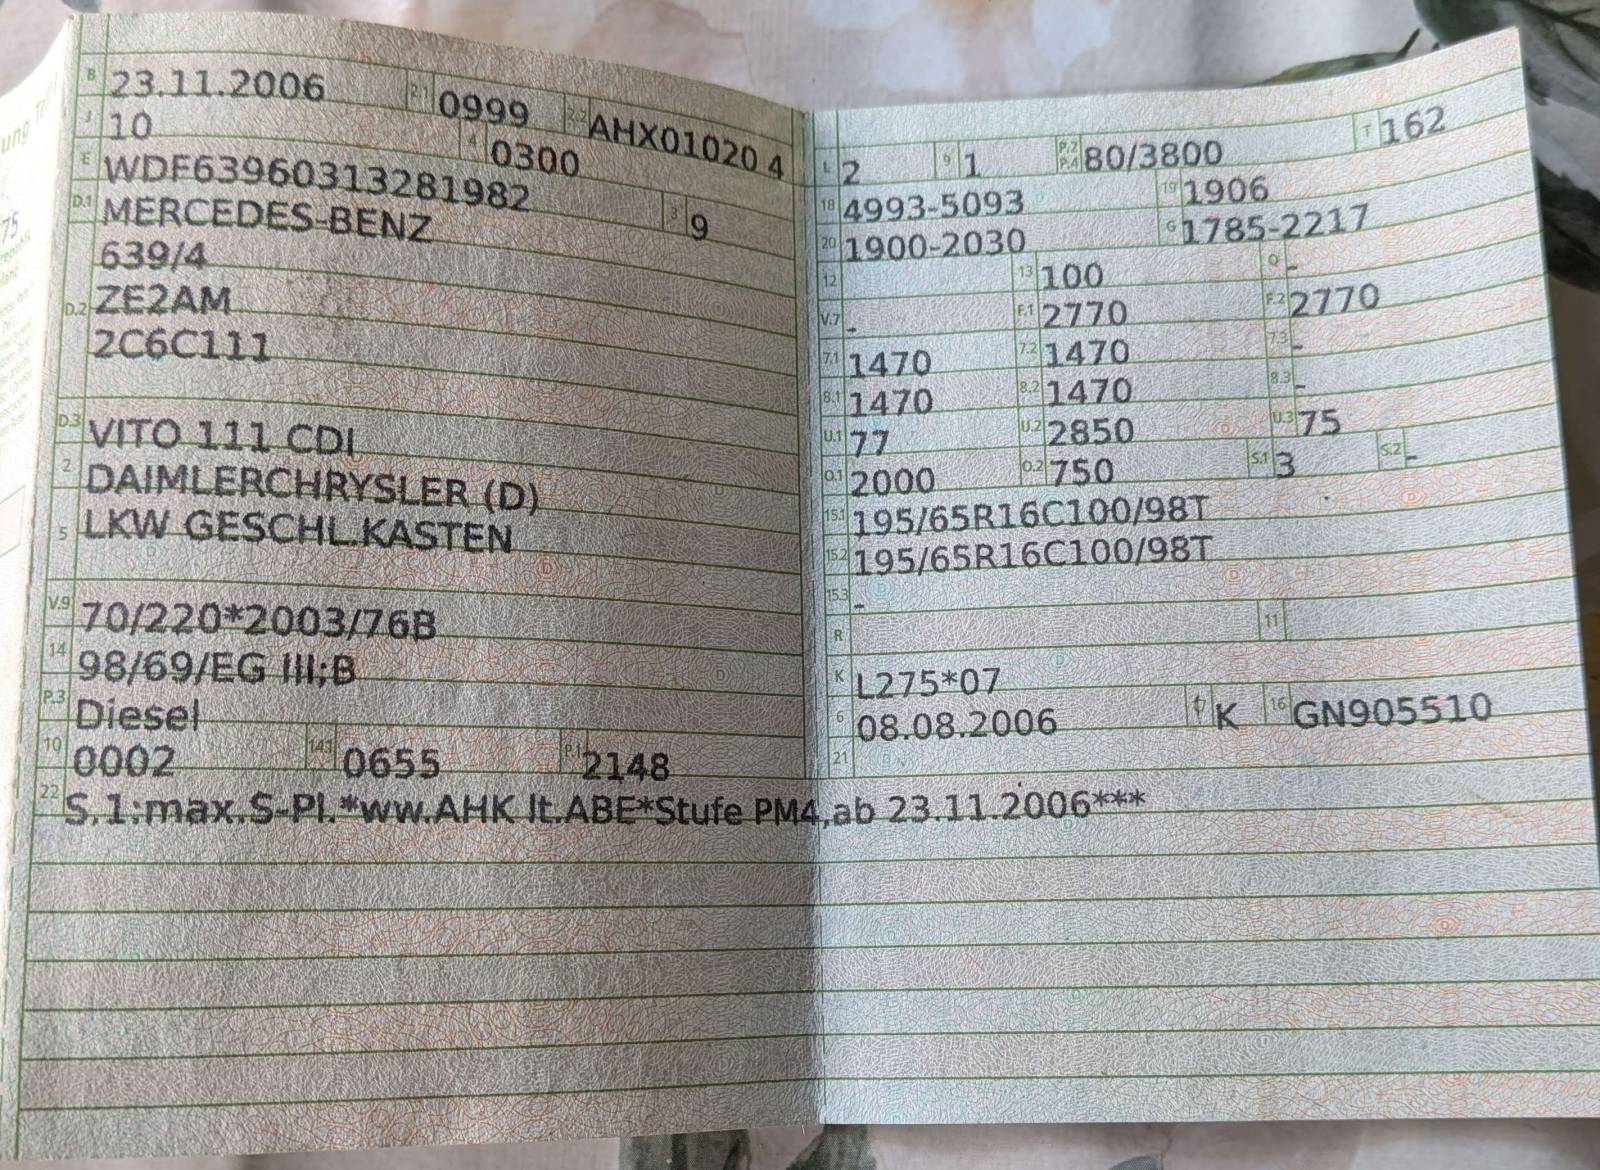 B 23.11.2006 2.1 0999 2.2 AHX01020 4
J 10 4 0300
E WDF63960313281982 3 9
D.1 MERCEDES-BENZ
639/4
D.2 ZE2AM
2C6C111
D.3 VITO 111 CDI
2 DAIMLERCHRYSLER (D)
5 LKW GESCHL.KASTEN
V.9 70/220*2003/76B
14 98/69/EG III;B
P.3 Diesel
10 0002 14.1 0655 P.1 2148
L 2 9 1 P.2 P.4 80/3800 T 162
18 4993-5093 19 1906
20 1900-2030 G 1785-2217
12 13 100 Q -
V.7 - F.1 2770 F.2 2770
7.1 1470 7.2 1470 7.3 -
8.1 1470 8.2 1470 8.3 -
U.1 77 U.2 2850 U.3 75
O.1 2000 O.2 750 S.1 3 S.2 -
15.1 195/65R16C100/98T
15.2 195/65R16C100/98T
15.3 -
R 11
K L275*07
6 08.08.2006 17 K 16 GN905510
21
22 S.1:max.S-Pl.*ww.AHK lt.ABE*Stufe PM4,ab 23.11.2006***